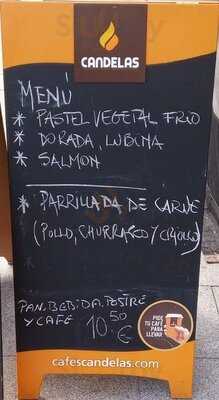 CANDELAS
MENÚ
* PASTEL VEGETAL FRIO
* DORADA, LUBINA
* SALMON
* PARRILLADA DE CARNE
(POLLO, CHURRASCO Y CRIOLLO)
PAN, BEBIDA, POSTRE
Y CAFE 10'50 €
PIDE
TU CAFÉ
PARA
LLEVAR
cafescandelas.com